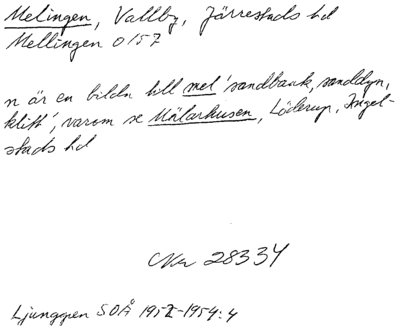 Melingen, Vallby, Järrestads hd
Mellingen 0157
n är en bildn till mel 'sandbank, sanddyn,
klitt', varom se Mälarhusen, Löderup, Ingel-
stads hd
28334
Ljunggren SOÅ 1952-1954:4